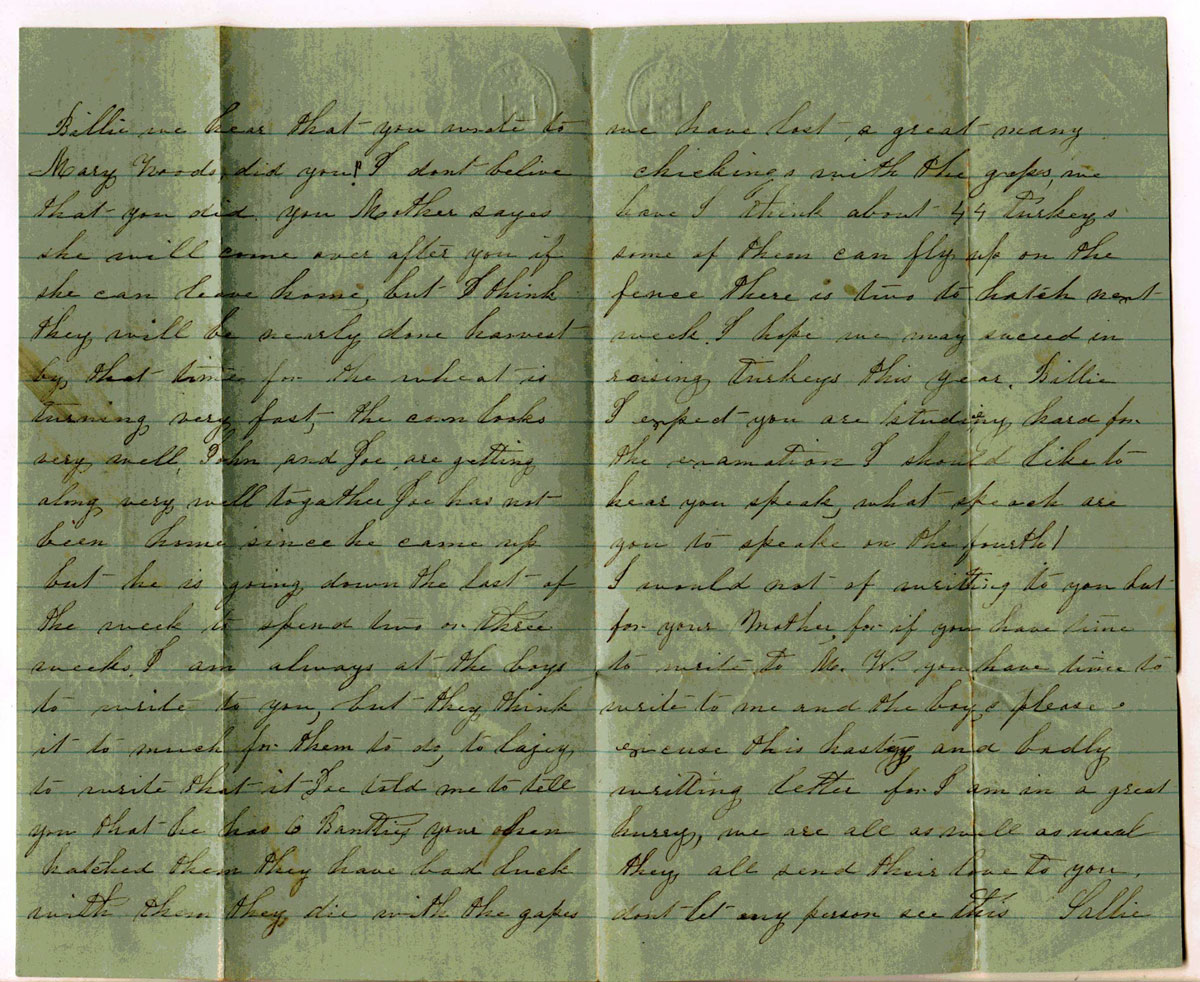 Billie we hear that you wrote to
Mary Woods, did you? I dont belive
that you did, you Mother sayes
she will come over after you if
she can leave home, but I think
they will be nearly done harvest
by that time for the wheat is
turning very fast, the corn looks
very well, John and Joe are getting
along very well togather Joe has not
been home since he came up
but he is going down the last of
the week to spend two or three
weeks. I am always at the boys
to write to you, but they think
it to much for them to do, to lazey
to write that it Joe told me to tell
you that he has 6 Banties your hen
hatched them they have bad luck
with them they die with the gapes
we have lost a great many
chickings with the gapes, we
have I think about 44 Turkeys
some of them can fly up on the
fence there is two to hatch next
week. I hope we may succed in
raising turkeys this year. Billie
I expect you are studing hard for
the examation I should like to
hear you speak, what speach are
you to speake on the fourth!
I would not of writting to you but
for your Mother, for if you have time
to write to M. W. you have time to
write to me and the boys please
excuse this hastey and badly
writting letter for I am in a great
hurry, we are all as well as usual
they all send their love to you.
dont let any person see this Sallie